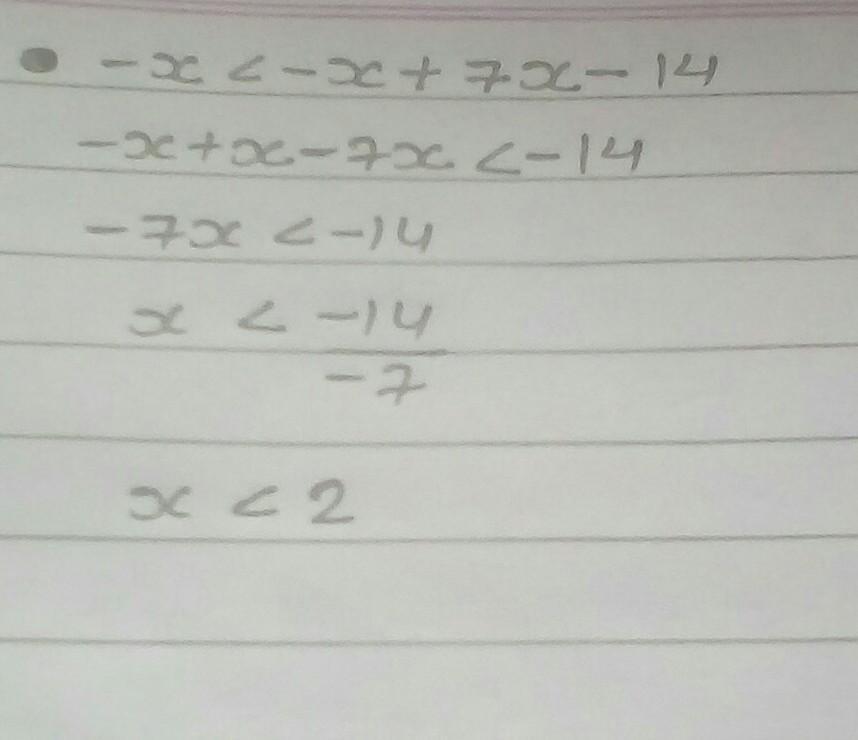 • -x < -x + 7x - 14
-x + x - 7x < -14
-7x < -14
x < -14
-7
x < 2